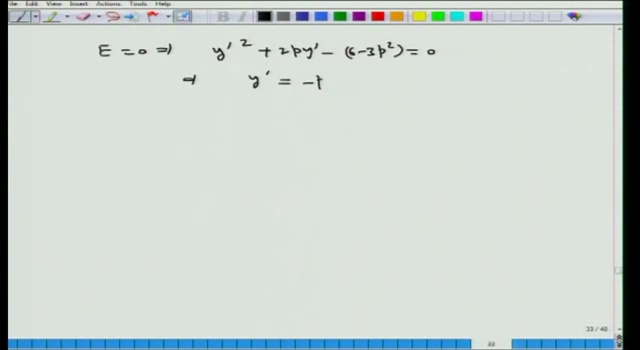 View Insert Actions Tools Help
E = 0 ⇒ y'² + 2py' - (6-3p²) = 0
⇒ y' = -
33 / 40
33